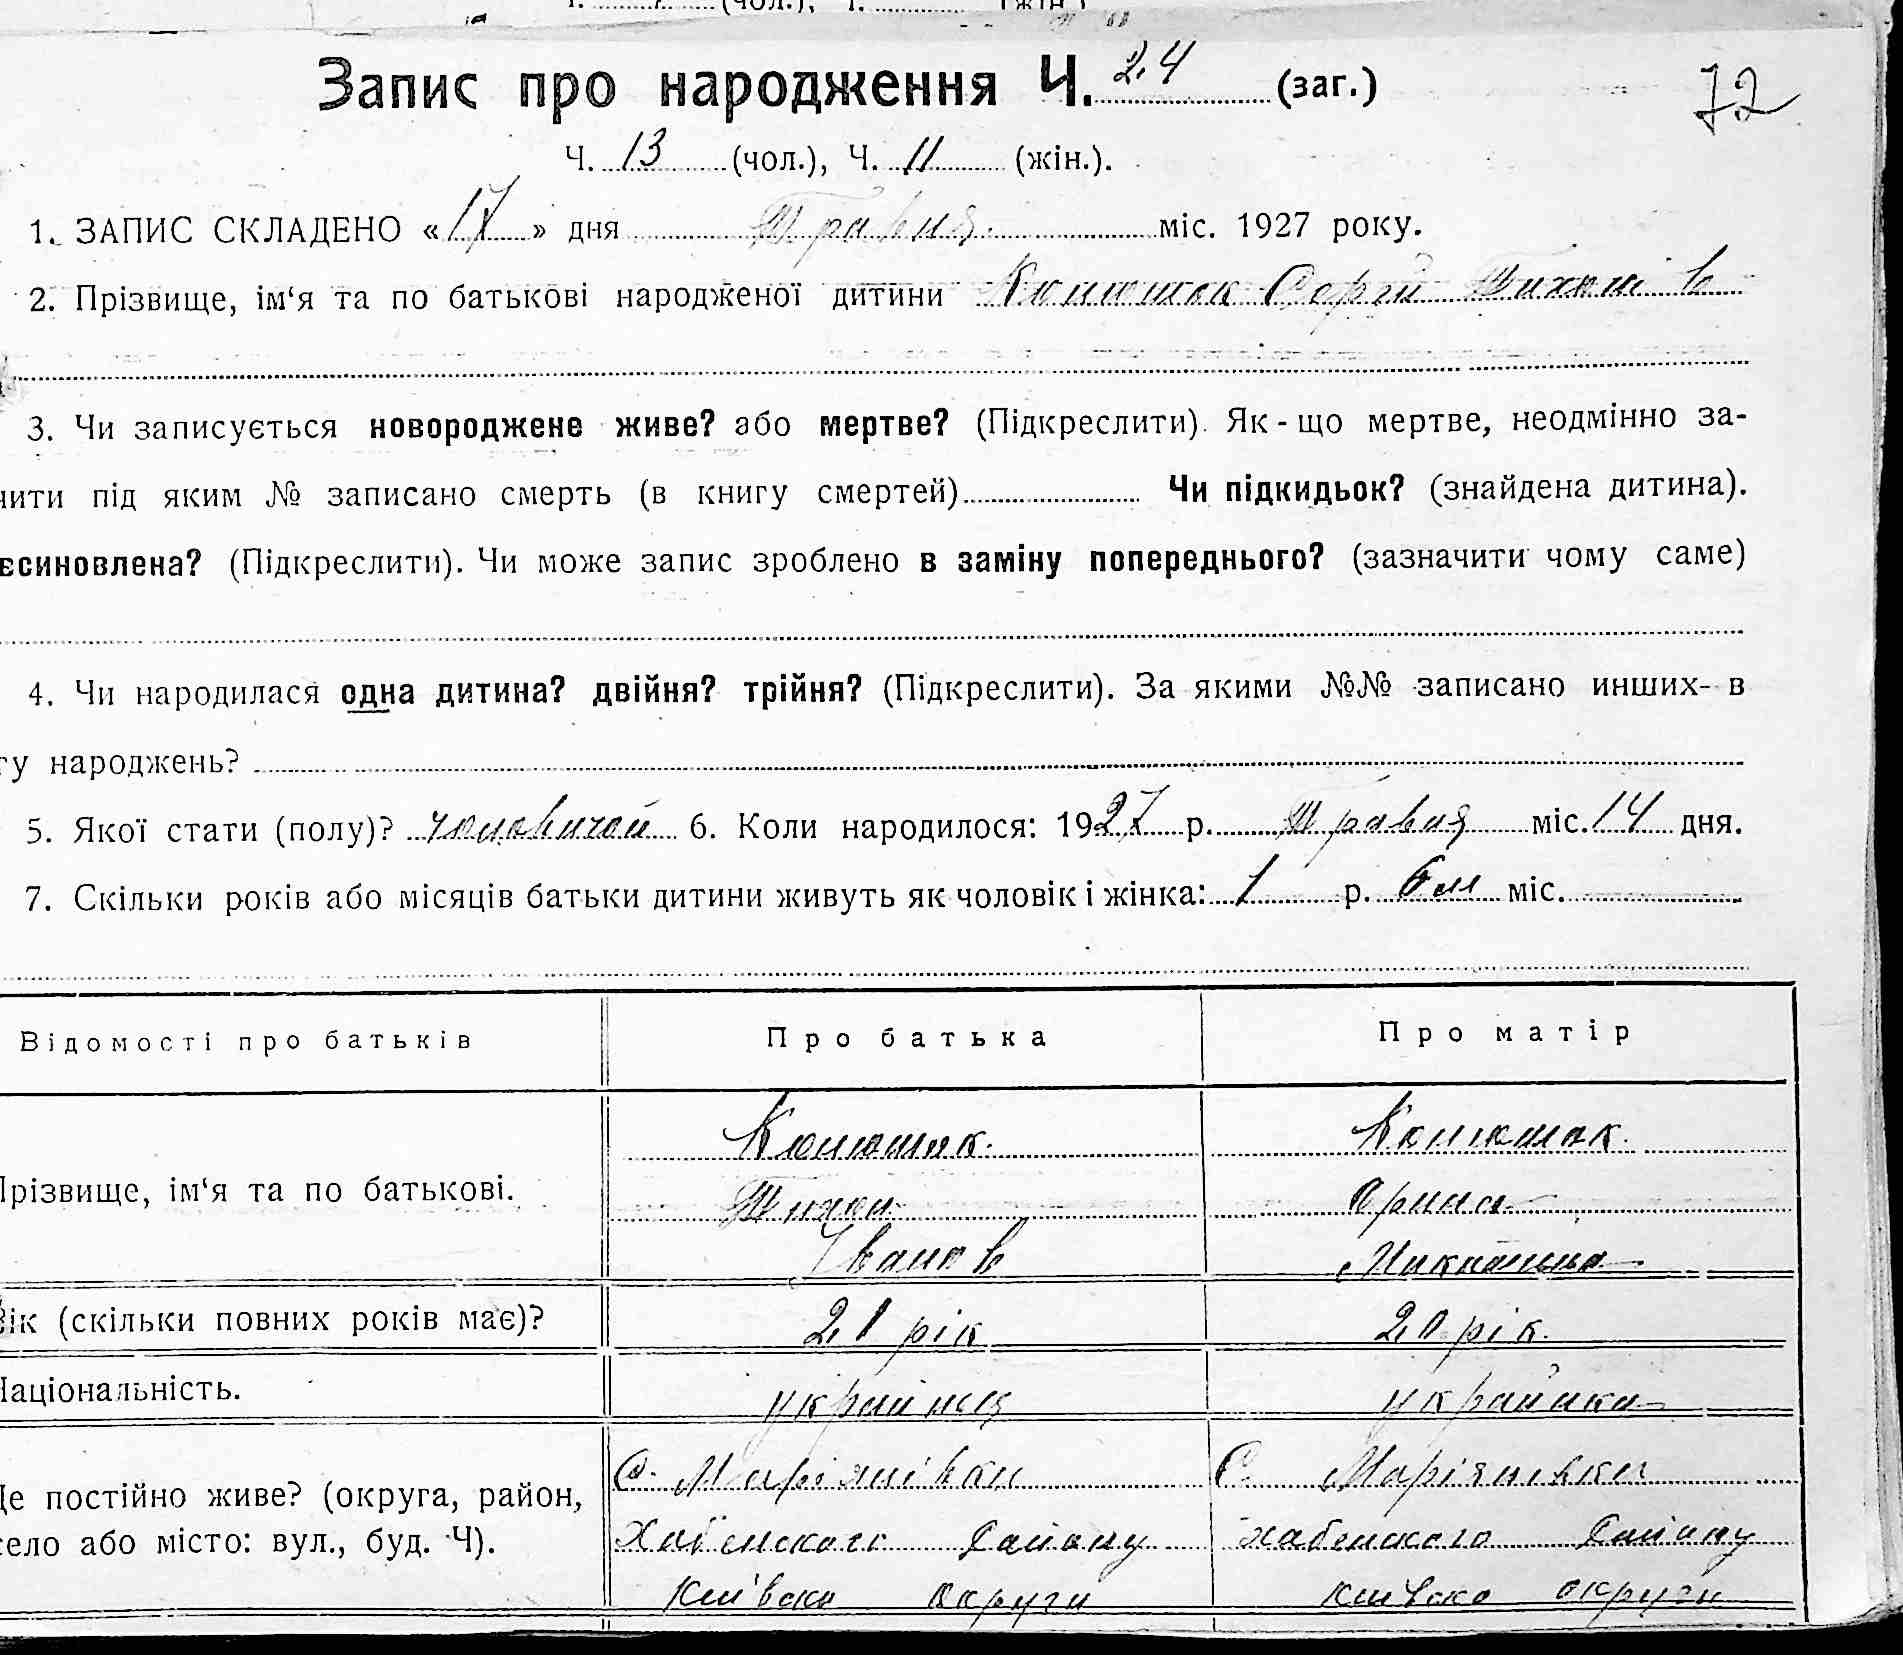 Запис про народження Ч. 24 (заг.)
72
Ч. 13 (чол.), Ч. 11 (жін.).
1. ЗАПИС СКЛАДЕНО «17» дня Травня міс. 1927 року.
2. Прізвище, ім‘я та по батькові народженої дитини Конюшок Сергій Тихонів
3. Чи записується новороджене живе? або мертве? (Підкреслити). Як-що мертве, неодмінно за-
чити під яким № записано смерть (в книгу смертей) Чи підкидьок? (знайдена дитина).
всиновлена? (Підкреслити). Чи може запис зроблено в заміну попереднього? (зазначити чому саме)
4. Чи народилася одна дитина? двійня? трійня? (Підкреслити). За якими №№ записано инших- в
гу народжень?
5. Якої стати (полу)? чоловичой 6. Коли народилося: 1927 р. Травня міс. 14 дня.
7. Скільки років або місяців батьки дитини живуть як чоловік і жінка: 1 р. 6 м міс.
Відомості про батьків Про батька Про матір
Конюшок. Конюшок.
Прізвище, ім‘я та по батькові. Тихон Орина
Іванов Микитовна
Вік (скільки повних років має)? 21 рік 20 рік.
Національність. украйнця украйнка
С. Маріянівки С. Маріянівки
Де постійно живе? (округа, район,
село або місто: вул., буд. Ч). Хабенського Району Хабенского Району
Київско округи Київско округи